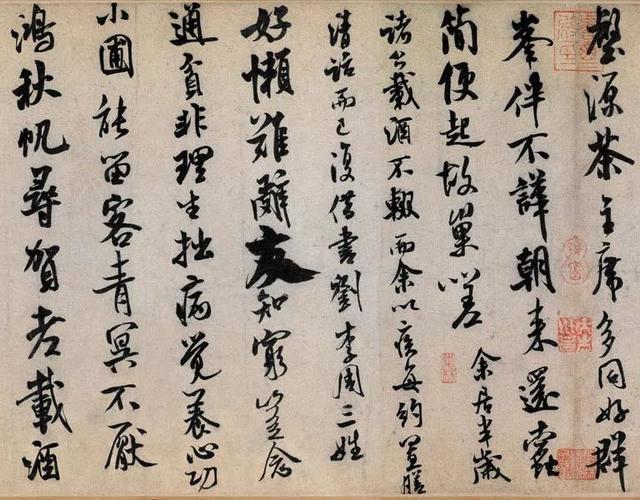 壑源茶主席多同好群
峯伴不譁朝来還蠹
簡便起故巢嗟
余居半歲
諸公載酒不輟而余以疾每約置膳
清話而已復借書劉李周三姓
好懶難辭友知窮豈念
通貧非理生拙病覺養心功
小圃能留客青冥不厭
鴻秋帆尋賀老載酒